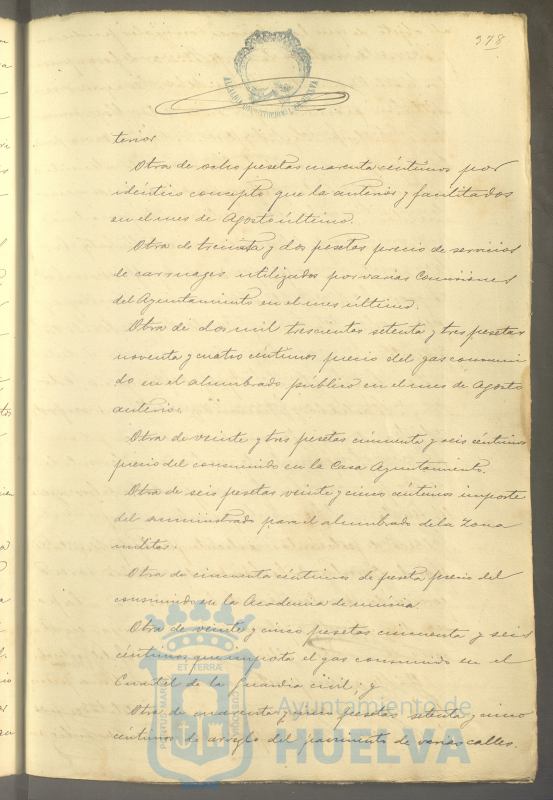 378
ALCALDIA CONSTITUCIONAL DE HUELVA
terior
Otra de ocho pesetas cuarenta céntimos por
idéntico concepto que la anterior y facilitados
en el mes de Agosto último.
Otra de treinta y dos pesetas precio de servicios
de carruages utilizados por varias Comisiones
del Ayuntamiento en el mes último.
Otra de dos mil trescientas setenta y tres pesetas
noventa y cuatro céntimos precio del gas consumi
do en el alumbrado público en el mes de Agosto
anterior.
Otra de veinte y tres pesetas cincuenta y seis céntimos
precio del consumido en la Casa Ayuntamiento.
Otra de seis pesetas veinte y cinco céntimos importe
del suministrado para el alumbrado de la Zona
militar.
Otra de cincuenta céntimos de peseta precio del
consumido en la Academia de música
Otra de veinte y cinco pesetas cincuenta y seis
céntimos que importa el gas consumido en el
Cuartel de la Guardia civil; y
Otra de cuarenta y pesetas setenta y cinco
céntimos de arreglo del pavimento de varias calles.
PORTUS MARIS ET TERRÆ CUSTODIA
Ayuntamiento de
HUELVA